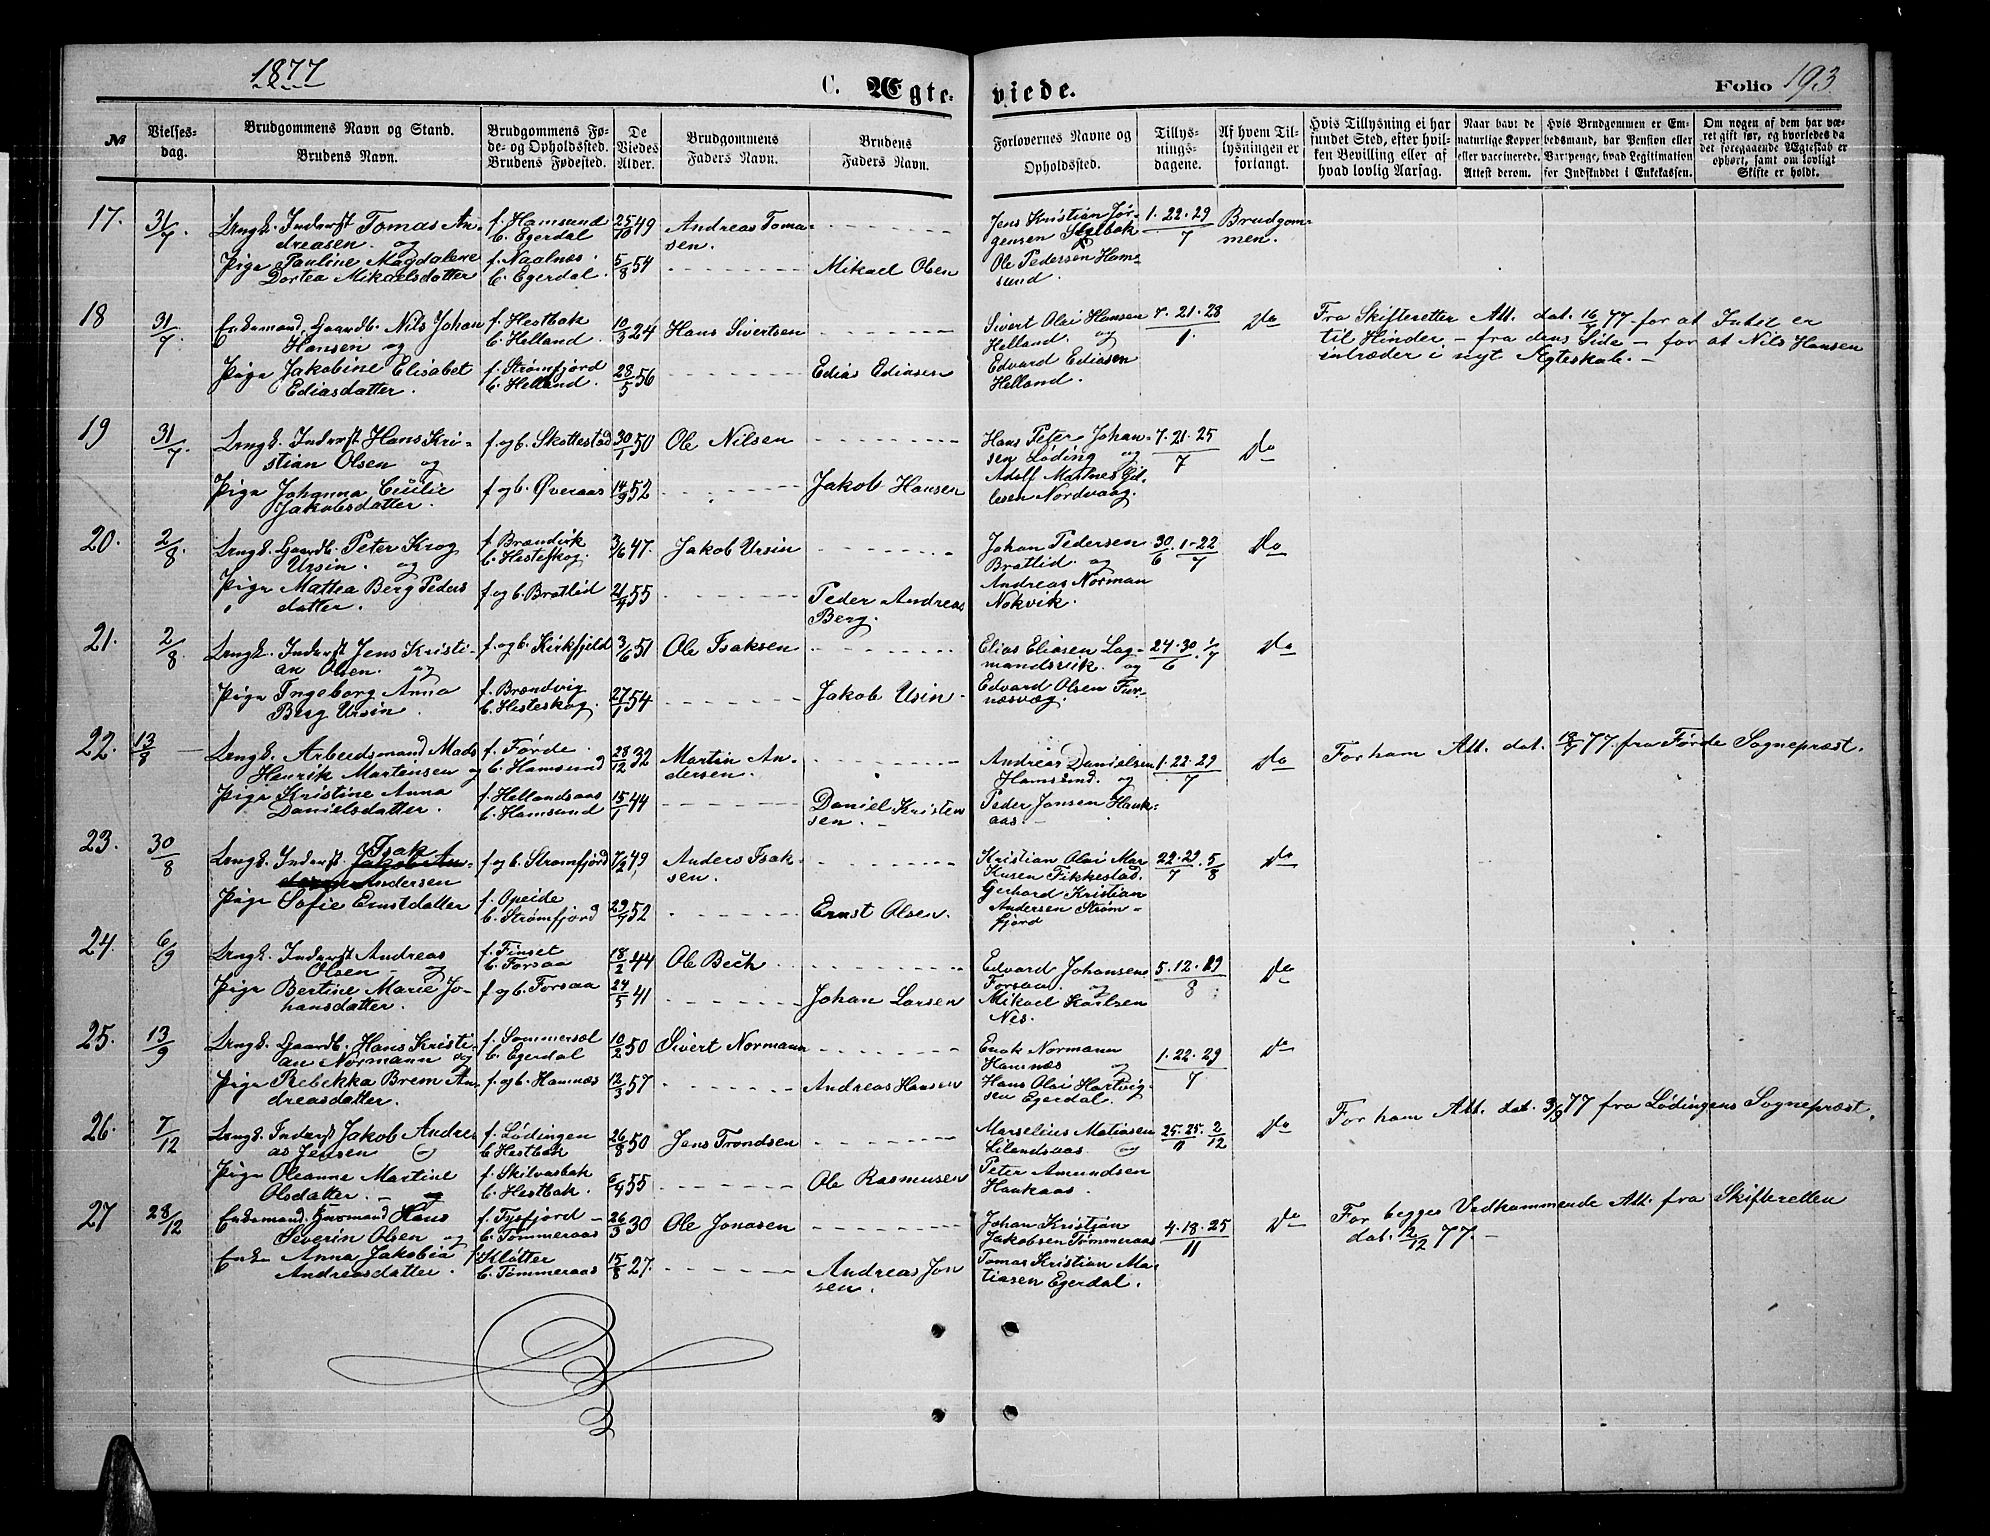 1877
C. Ægte-
viede.
Folio 193
№
Vielses-
dag.
Brudgommens Navn og Stand.
Brudens Navn.
Brudgommens Fø-
de- og Opholdssted.
Brudens Fødested.
De
Viedes
Alder.
Brudgommens
Faders Navn.
Brudens
Faders Navn.
Forlovernes Navne og
Opholdssted.
Tillys-
nings-
dagene.
Af hvem Til-
lysningen er
forlangt.
Hvis Tillysning ei har
fundet Sted, efter hvil-
ken Bevilling eller af
hvad lovlig Aarsag.
Naar havt de
naturlige Kopper
eller vaccinerede.
Attest derom.
Hvis Brudgommen er Em-
bedsmand, har Pension eller
Vartpenge, hvad Legitimation
for Indskuddet i Enkekassen.
Om nogen af dem har væ-
ret gift før, og hvorledes da
det foregaaende Ægteskab er
ophørt, samt om lovligt
Skifte er holdt.
17. 31/7 Ungk. Inderst Tomas An-
dreasen. og
f. Hamsund
b. Egerdal
25/10 49
Andreas Toma-
sen.
Pige Pauline Magdalene
Dortea Mikaelsdatter
f. Naalnæs.
b. Egerdal.
5/8 54
Mikael Olsen
Jens Kristian Jør-
gensen
Ole Pedersen Ham-
sund.
1. 22. 29
7
Brudgom-
men.
18 31/7 Enkemand Gaardb. Nils Johan
Hansen og
f. Hestbak
b. Helland.
10/3 24
Hans Sivertsen
Pige Jakobine Elisabet
Ediasdatter.
f. Strømfjord
b. Helland.
28/5 56
Edias Ediasen
Sivert Olai Hansen
Helland. og
Edvard Ediasen
Helland.
7. 21. 28
1.
Do
Fra Skifteretten Att. dat. 16/7 77 for at Intet er
til Hinder - fra dens Side - for at Nils Hansen
intræder i nyt Ægteskab. -
19 31/7 Ungk. Inderst Hans Kri-
stian Olsen og
f. og b. Skottestad
30/1 50
Ole Nilsen
Pige Johanna Cecilie
Jakobsdatter.
f og b. Øveraas
14/9 52
Jakob Hansen
Hans Peter Johan-
sen Løding og
Adolf Matnes Gil-
lesen Nordvaag.
7. 21. 25
7
Do
20. 2/8. Ungk. Gaardb. Peter Krog
Ursin. og
f. Brændvik
b. Hesteskog.
3/6 47.
Jakob Ursin
Pige Mattea Berg Peders
datter.
f og b. Bratlid
21/9 55
Peder Andreas
Berg.
Johan Pedersen
Bratlid. og
Andreas Norman
Nokvik.
30/6. 1-22/7
Do
21. 2/8 Ungk. Inderst Jens Kristi-
an Olsen. og
f. og b. Kirkfjeld
3/6 51
Ole Isaksen
Pige Ingeborg Anna
Berg Ursin.
f. Brændvig
b. Hesteskog.
27/1 54
Jakob Usin
Elias Eliasen Lag-
mandsvik. og
Edvard Olsen Fur-
næsvæg.
24. 30/6. 1/7
Do
22. 13/8 Ungk. Arbeidsmand Mads
Henrik Martinsen og
f. Førde.
b. Hamsund
28/12 32
Martin An-
dersen.
Pige Kristine Anna
Danielsdatter.
f. Hellandsaas
b. Hamsund
15/1 44
Daniel Kristen
sen.
Andreas Danielsen
Hamsund. og
Peder Jonsen Hauk-
aas.
1. 22. 29
7
Do
For ham Att. dat. 18/7 77. fra Førde Sognepræst.
23. 30/8 Ungk. Inderst Isak
Andersen
f. og b. Strømfjord
7/2 49
Anders Isak-
sen.
Pige Sofie Ernstdatter
f. Opeide
b. Strømfjord
29/9 52
Ernst Olsen.
Kristian Olai Mar
kusen Fikkestad.
Gerhard Kristian
Andersen Strøm-
fjord
22. 29/7. 5/8
Do
24. 6/9 Ungk. Inderst Andreas
Olsen - og
f. Finset
b. Forsaa
18/2 44
Ole Bech
Pige Bertine Marie Jo-
hansdatter.
f og b. Forsaa
24/5 41
Johan Larsen
Edvard Johansen
Forsaa. og
Mikael Karlsen
Nes.
5. 12. 19
8
Do
25. 13/9 Ungk. Gaardb. Hans Kristi-
an Normann og
f. Sommersel
b. Egerdal
10/2 50
Sivert Normann
Pige Rebekka Brem An-
dreasdatter.
f. og b. Hamnæs
12/3 57
Andreas Hansen
Enok Normann
Hamnæs og
Hans Olai Hartvig-
sen Egerdal.
1. 22. 29
7
Do
26. 7/12 Ungk. Inderst Jakob Andre
as Jensen og
f. Lødingen
b. Hestbak
26/8 50
Jens Trondsen
Pige Oleanne Martine
Olsdatter. -
f. Skilvasbak
b. Hestbak.
6/4 55
Ole Rasmusen
Marselius Matiasen
Lilandsaas. og
Peter Amundsen
Haukaas.
25. 25/11. 2/12
Do
For ham Att. dat. 3/9 77 fra Lødingens Sognepræst.
27 28/12 Enkemand Husmand Hans
Severin Olsen og
f. Tysfjord
b. Tømmeraas
26/3 30
Ole Jonasen
Enke Anna Jakobia
Andreasdatter.
f. Kløtter
b. Tømmeraas
15/8 27.
Andreas Jon
sen.
Johan Kristian
Jakobsen Tømmeraas
Tomas Kristian Ma-
tiasen Egerdal.
4. 18. 25
11
Do
For begges Vedkommende Att. fra Skifteretten
dat. 12/12 77. -